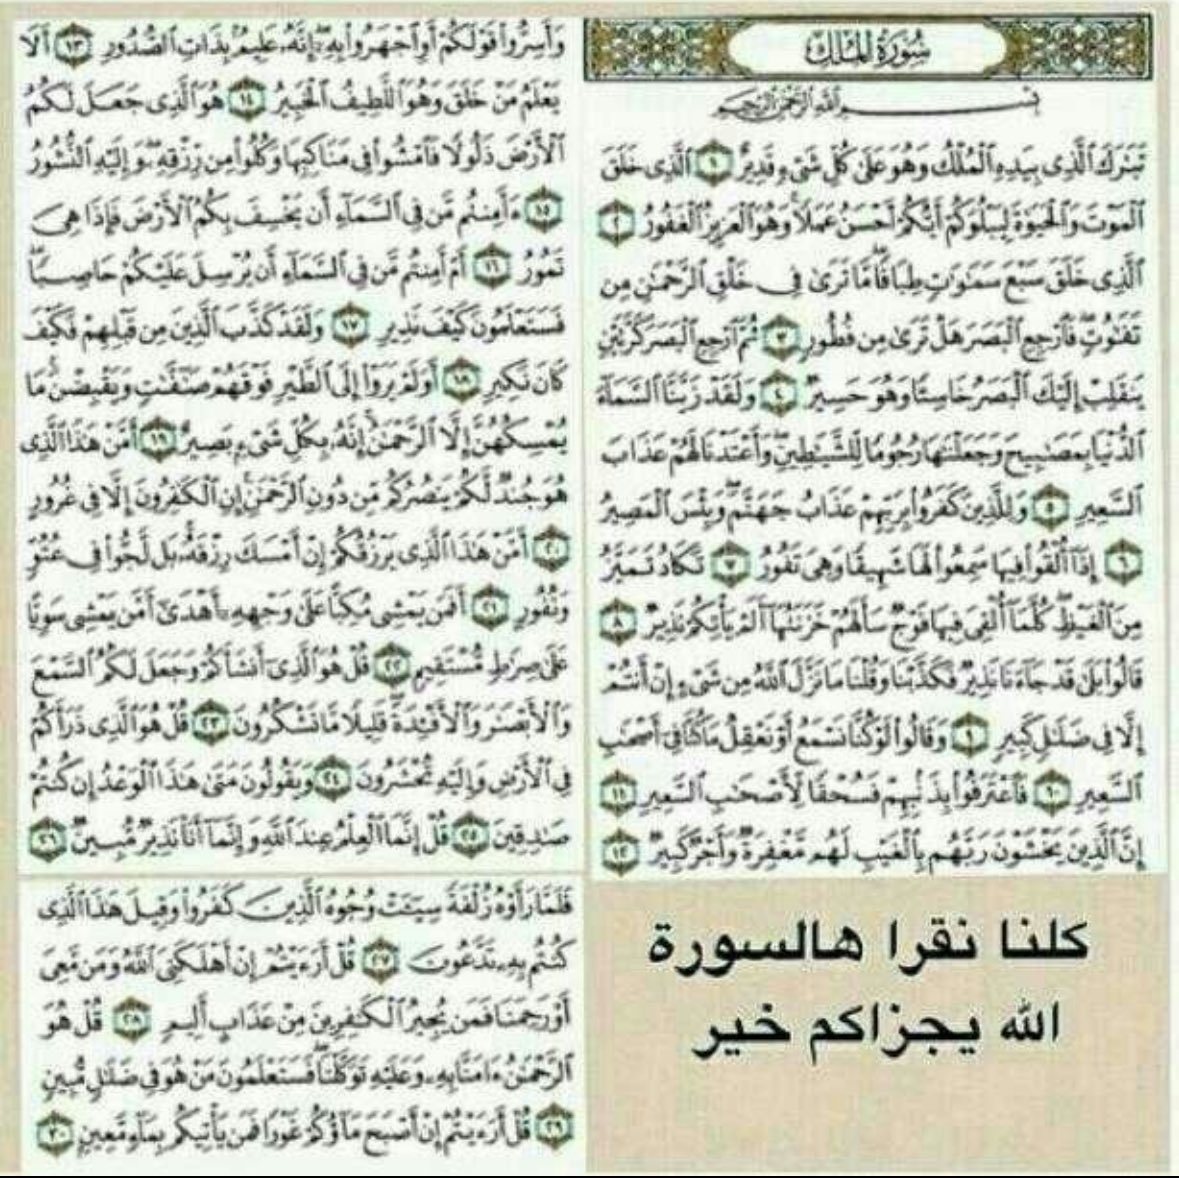 سُورَةُ المُلْكِ
بِسْمِ اللَّهِ الرَّحْمَٰنِ الرَّحِيمِ
تَبَٰرَكَ ٱلَّذِى بِيَدِهِ ٱلْمُلْكُ وَهُوَ عَلَىٰ كُلِّ شَىْءٍ قَدِيرٌ ١ ٱلَّذِى خَلَقَ
ٱلْمَوْتَ وَٱلْحَيَوٰةَ لِيَبْلُوَكُمْ أَيُّكُمْ أَحْسَنُ عَمَلًا وَهُوَ ٱلْعَزِيزُ ٱلْغَفُورُ ٢
ٱلَّذِى خَلَقَ سَبْعَ سَمَٰوَٰتٍ طِبَاقًا مَّا تَرَىٰ فِى خَلْقِ ٱلرَّحْمَٰنِ مِن
تَفَٰوُتٍ فَٱرْجِعِ ٱلْبَصَرَ هَلْ تَرَىٰ مِن فُطُورٍ ٣ ثُمَّ ٱرْجِعِ ٱلْبَصَرَ كَرَّتَيْنِ
يَنقَلِبْ إِلَيْكَ ٱلْبَصَرُ خَاسِئًا وَهُوَ حَسِيرٌ ٤ وَلَقَدْ زَيَّنَّا ٱلسَّمَآءَ
ٱلدُّنْيَا بِمَصَٰبِيحَ وَجَعَلْنَٰهَا رُجُومًا لِّلشَّيَٰطِينِ وَأَعْتَدْنَا لَهُمْ عَذَابَ
ٱلسَّعِيرِ ٥ وَلِلَّذِينَ كَفَرُوا۟ بِرَبِّهِمْ عَذَابُ جَهَنَّمَ وَبِئْسَ ٱلْمَصِيرُ
٦ إِذَآ أُلْقُوا۟ فِيهَا سَمِعُوا۟ لَهَا شَهِيقًا وَهِىَ تَفُورُ ٧ تَكَادُ تَمَيَّزُ
مِنَ ٱلْغَيْظِ كُلَّمَآ أُلْقِىَ فِيهَا فَوْجٌ سَأَلَهُمْ خَزَنَتُهَآ أَلَمْ يَأْتِكُمْ نَذِيرٌ ٨
قَالُوا۟ بَلَىٰ قَدْ جَآءَنَا نَذِيرٌ فَكَذَّبْنَا وَقُلْنَا مَا نَزَّلَ ٱللَّهُ مِن شَىْءٍ إِنْ أَنتُمْ
إِلَّا فِى ضَلَٰلٍ كَبِيرٍ ٩ وَقَالُوا۟ لَوْ كُنَّا نَسْمَعُ أَوْ نَعْقِلُ مَا كُنَّا فِىٓ أَصْحَٰبِ
ٱلسَّعِيرِ ١٠ فَٱعْتَرَفُوا۟ بِذَنۢبِهِمْ فَسُحْقًا لِّأَصْحَٰبِ ٱلسَّعِيرِ ١١
إِنَّ ٱلَّذِينَ يَخْشَوْنَ رَبَّهُم بِٱلْغَيْبِ لَهُم مَّغْفِرَةٌ وَأَجْرٌ كَبِيرٌ ١٢
وَأَسِرُّوا۟ قَوْلَكُمْ أَوِ ٱجْهَرُوا۟ بِهِۦٓ إِنَّهُۥ عَلِيمٌۢ بِذَاتِ ٱلصُّدُورِ ١٣ أَلَا
يَعْلَمُ مَنْ خَلَقَ وَهُوَ ٱللَّطِيفُ ٱلْخَبِيرُ ١٤ هُوَ ٱلَّذِى جَعَلَ لَكُمُ
ٱلْأَرْضَ ذَلُولًا فَٱمْشُوا۟ فِى مَنَاكِبِهَا وَكُلُوا۟ مِن رِّزْقِهِۦ وَإِلَيْهِ ٱلنُّشُورُ
١٥ ءَأَمِنتُم مَّن فِى ٱلسَّمَآءِ أَن يَخْسِفَ بِكُمُ ٱلْأَرْضَ فَإِذَا هِىَ
تَمُورُ ١٦ أَمْ أَمِنتُم مَّن فِى ٱلسَّمَآءِ أَن يُرْسِلَ عَلَيْكُمْ حَاصِبًا
فَسَتَعْلَمُونَ كَيْفَ نَذِيرِ ١٧ وَلَقَدْ كَذَّبَ ٱلَّذِينَ مِن قَبْلِهِمْ فَكَيْفَ
كَانَ نَكِيرِ ١٨ أَوَلَمْ يَرَوْا۟ إِلَى ٱلطَّيْرِ فَوْقَهُمْ صَٰٓفَّٰتٍ وَيَقْبِضْنَ مَا
يُمْسِكُهُنَّ إِلَّا ٱلرَّحْمَٰنُ إِنَّهُۥ بِكُلِّ شَىْءٍۭ بَصِيرٌ ١٩ أَمَّنْ هَٰذَا ٱلَّذِى
هُوَ جُندٌ لَّكُمْ يَنصُرُكُم مِّن دُونِ ٱلرَّحْمَٰنِ إِنِ ٱلْكَٰفِرُونَ إِلَّا فِى غُرُورٍ
٢٠ أَمَّنْ هَٰذَا ٱلَّذِى يَرْزُقُكُمْ إِنْ أَمْسَكَ رِزْقَهُۥ بَل لَّجُّوا۟ فِى عُتُوٍّ
وَنُفُورٍ ٢١ أَفَمَن يَمْشِى مُكِبًّا عَلَىٰ وَجْهِهِۦٓ أَهْدَىٰٓ أَمَّن يَمْشِى سَوِيًّا
عَلَىٰ صِرَٰطٍ مُّسْتَقِيمٍ ٢٢ قُلْ هُوَ ٱلَّذِىٓ أَنشَأَكُمْ وَجَعَلَ لَكُمُ ٱلسَّمْعَ
وَٱلْأَبْصَٰرَ وَٱلْأَفْـِٔدَةَ قَلِيلًا مَّا تَشْكُرُونَ ٢٣ قُلْ هُوَ ٱلَّذِى ذَرَأَكُمْ
فِى ٱلْأَرْضِ وَإِلَيْهِ تُحْشَرُونَ ٢٤ وَيَقُولُونَ مَتَىٰ هَٰذَا ٱلْوَعْدُ إِن كُنتُمْ
صَٰدِقِينَ ٢٥ قُلْ إِنَّمَا ٱلْعِلْمُ عِندَ ٱللَّهِ وَإِنَّمَآ أَنَا۠ نَذِيرٌ مُّبِينٌ ٢٦
فَلَمَّا رَأَوْهُ زُلْفَةً سِيٓـَٔتْ وُجُوهُ ٱلَّذِينَ كَفَرُوا۟ وَقِيلَ هَٰذَا ٱلَّذِى
كُنتُم بِهِۦ تَدَّعُونَ ٢٧ قُلْ أَرَءَيْتُمْ إِنْ أَهْلَكَنِىَ ٱللَّهُ وَمَن مَّعِىَ
أَوْ رَحِمَنَا فَمَن يُجِيرُ ٱلْكَٰفِرِينَ مِنْ عَذَابٍ أَلِيمٍ ٢٨ قُلْ هُوَ
ٱلرَّحْمَٰنُ ءَامَنَّا بِهِۦ وَعَلَيْهِ تَوَكَّلْنَا فَسَتَعْلَمُونَ مَنْ هُوَ فِى ضَلَٰلٍ مُّبِينٍ
٢٩ قُلْ أَرَءَيْتُمْ إِنْ أَصْبَحَ مَآؤُكُمْ غَوْرًا فَمَن يَأْتِيكُم بِمَآءٍ مَّعِينٍۭ ٣٠
كلنا نقرا هالسورة
الله يجزاكم خير